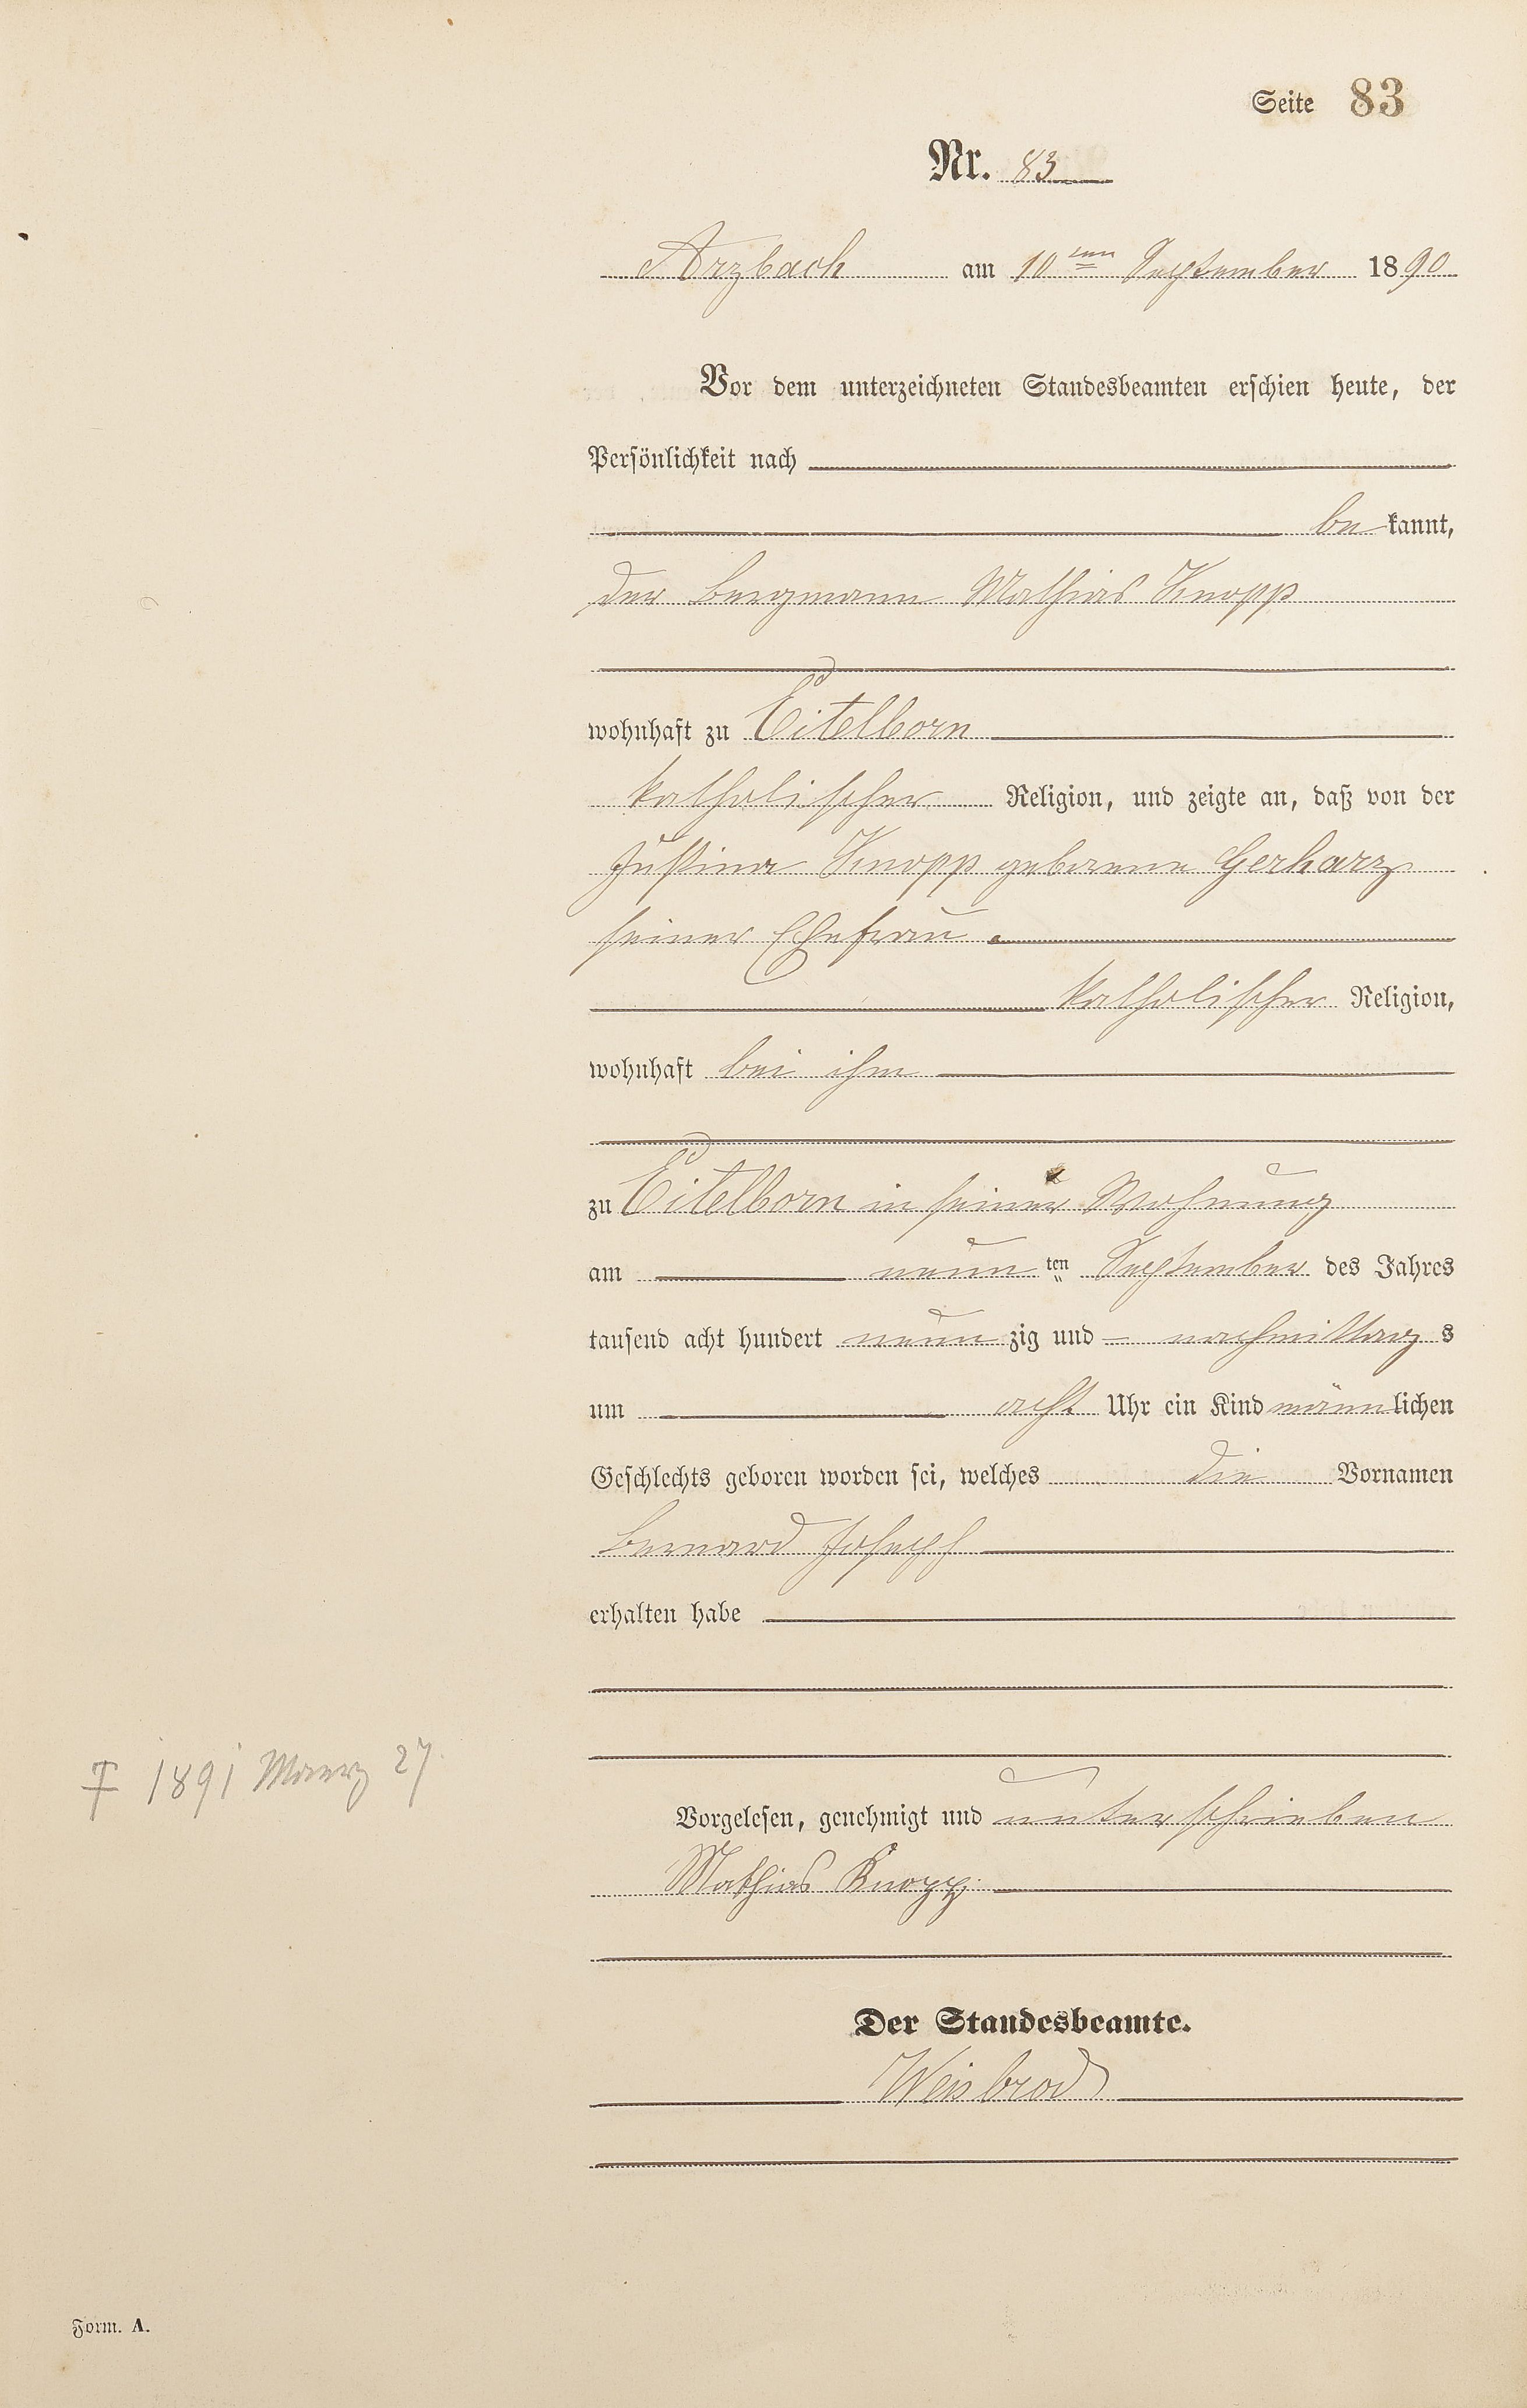 Seite 83
Nr. 83
Arzbach am 10ten September 1890
Vor dem unterzeichneten Standesbeamten erschien heute, der
Persönlichkeit nach
bekannt,
der Bergmann Mathias Knopp
wohnhaft zu Eitelborn
katholischer Religion, und zeigte an, daß von der
Justina Knopp geborene Gerharz
seiner Ehefrau
katholischer Religion,
wohnhaft bei ihm
zu Eitelborn in seiner Wohnung
am neunten September des Jahres
tausend acht hundert neunzig und nachmittags
um acht Uhr ein Kind männlichen
Geschlechts geboren worden sei, welches die Vornamen
Bernard Joseph
erhalten habe
† 1891 Maerz 27.
Vorgelesen, genehmigt und unterschrieben
Mathias Knopp
Der Standesbeamte.
Weisbrod
Form. A.